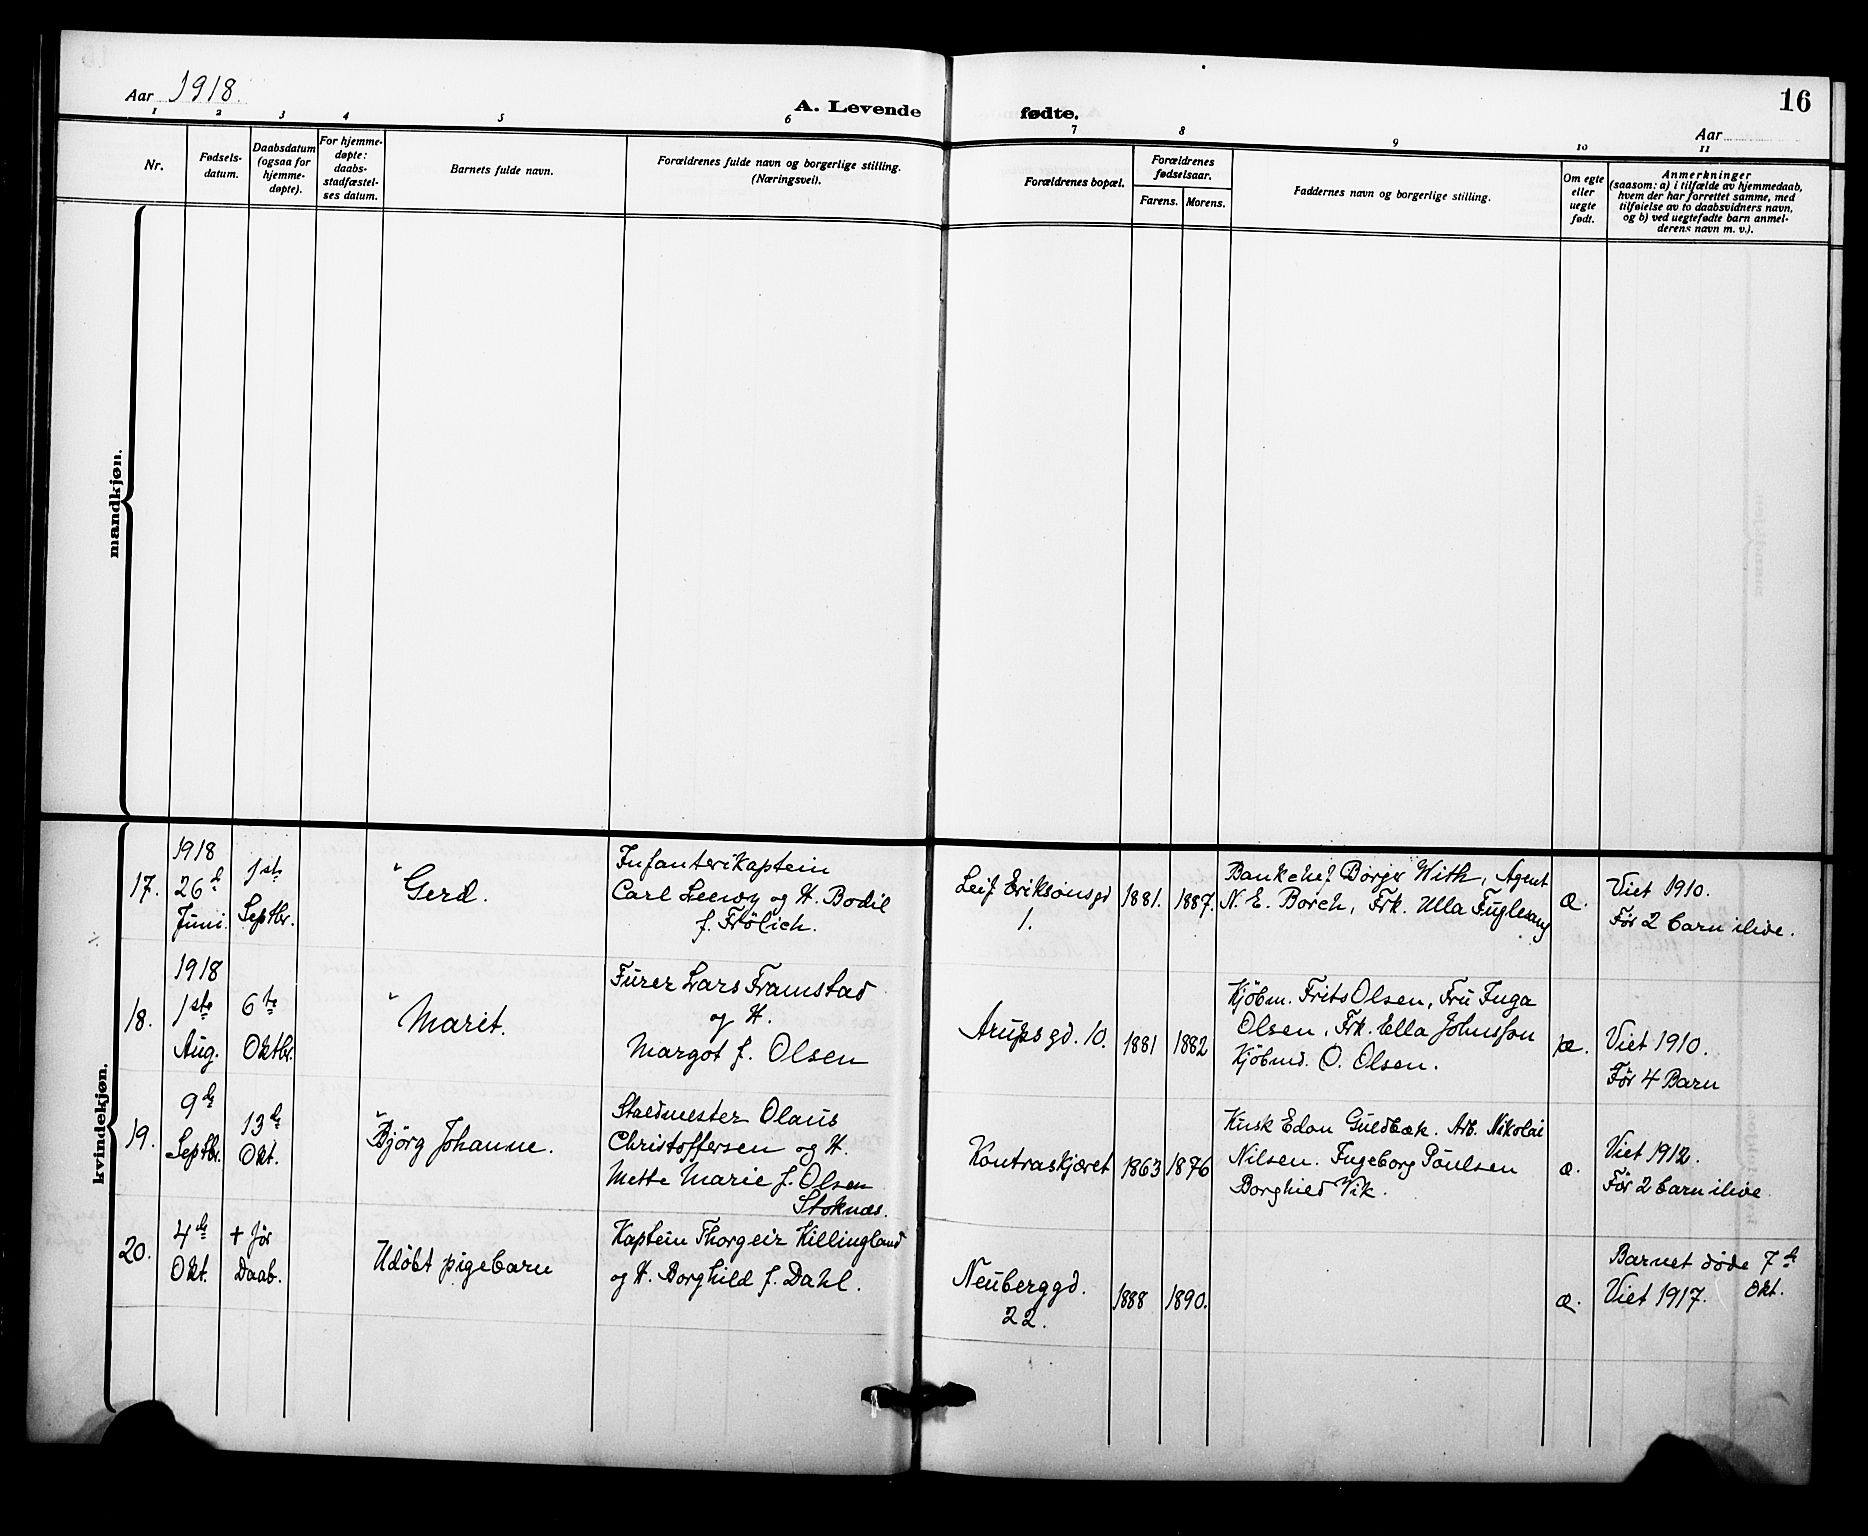 Aar 1918.
A. Levende fødte.
16
Aar
1 2 3 4 5 6 7 8 9 10 11
Nr.
Fødsels-
datum.
Daabsdatum
(ogsaa for
hjemme-
døpte).
For hjemme-
døpte:
daabs-
stadfæstel-
ses datum.
Barnets fulde navn.
Forældrenes fulde navn og borgerlige stilling.
(Næringsvei).
Forældrenes bopæl.
Forældrenes
fødselsaar.
Farens. Morens.
Faddernes navn og borgerlige stilling.
Om egte
eller
uegte
født.
Anmerkninger
(saasom: a) i tilfælde av hjemmedaab,
hvem der har forrettet samme, med
tilføielse av to daabsvidners navn,
og b) ved uegtefødte barn anmel-
derens navn m. v.).
mandkjøn.
kvindekjøn.
17.
1918
26d
Juni.
1ste
Septbr.
Gerd.
Infanterikaptein
Carl og H. Bodil
f. Frölich.
Leif Eriksonsgd
1.
1881.
1887.
Bankchef Börger With, Agent
N. E. Borch, Frk. Ulla Fuglesang
æ.
Viet 1910.
Før 2 barn ilive.
18.
1918
1ste
Aug.
6te
Oktbr.
Marit.
Furer Lars Framstad
og H.
Margot f. Olsen
Arupsgd. 10.
1881
1882
Kjöbm. Frits Olsen, Fru Inga
Olsen, Frk. Ella Johnsson
Kjöbmd. O. Olsen.
æ.
Viet 1910.
Før 4 Barn
19.
9de
Septbr.
13de
Okt.
Björg Johanne.
Staldmester Olaus
Christoffersen og H.
Mette Marie f. Olsen
Stoknæs.
Kontraskjæret
1863
1876
Kusk Edon Guldbæk. Arb. Nikolai
Nilsen. Ingeborg Poulsen
Borghild Vik.
æ.
Viet 1912.
Før 2 barn ilive.
20.
4de
Okt.
+ før
Daab.
Udöbt pigebarn
Kaptein Thorgeir Killingland
og H. Borghild f. Dahl.
Neuberggd.
22.
1888
1890.
æ.
Barnet døde 7de
Okt.
Viet 1917.